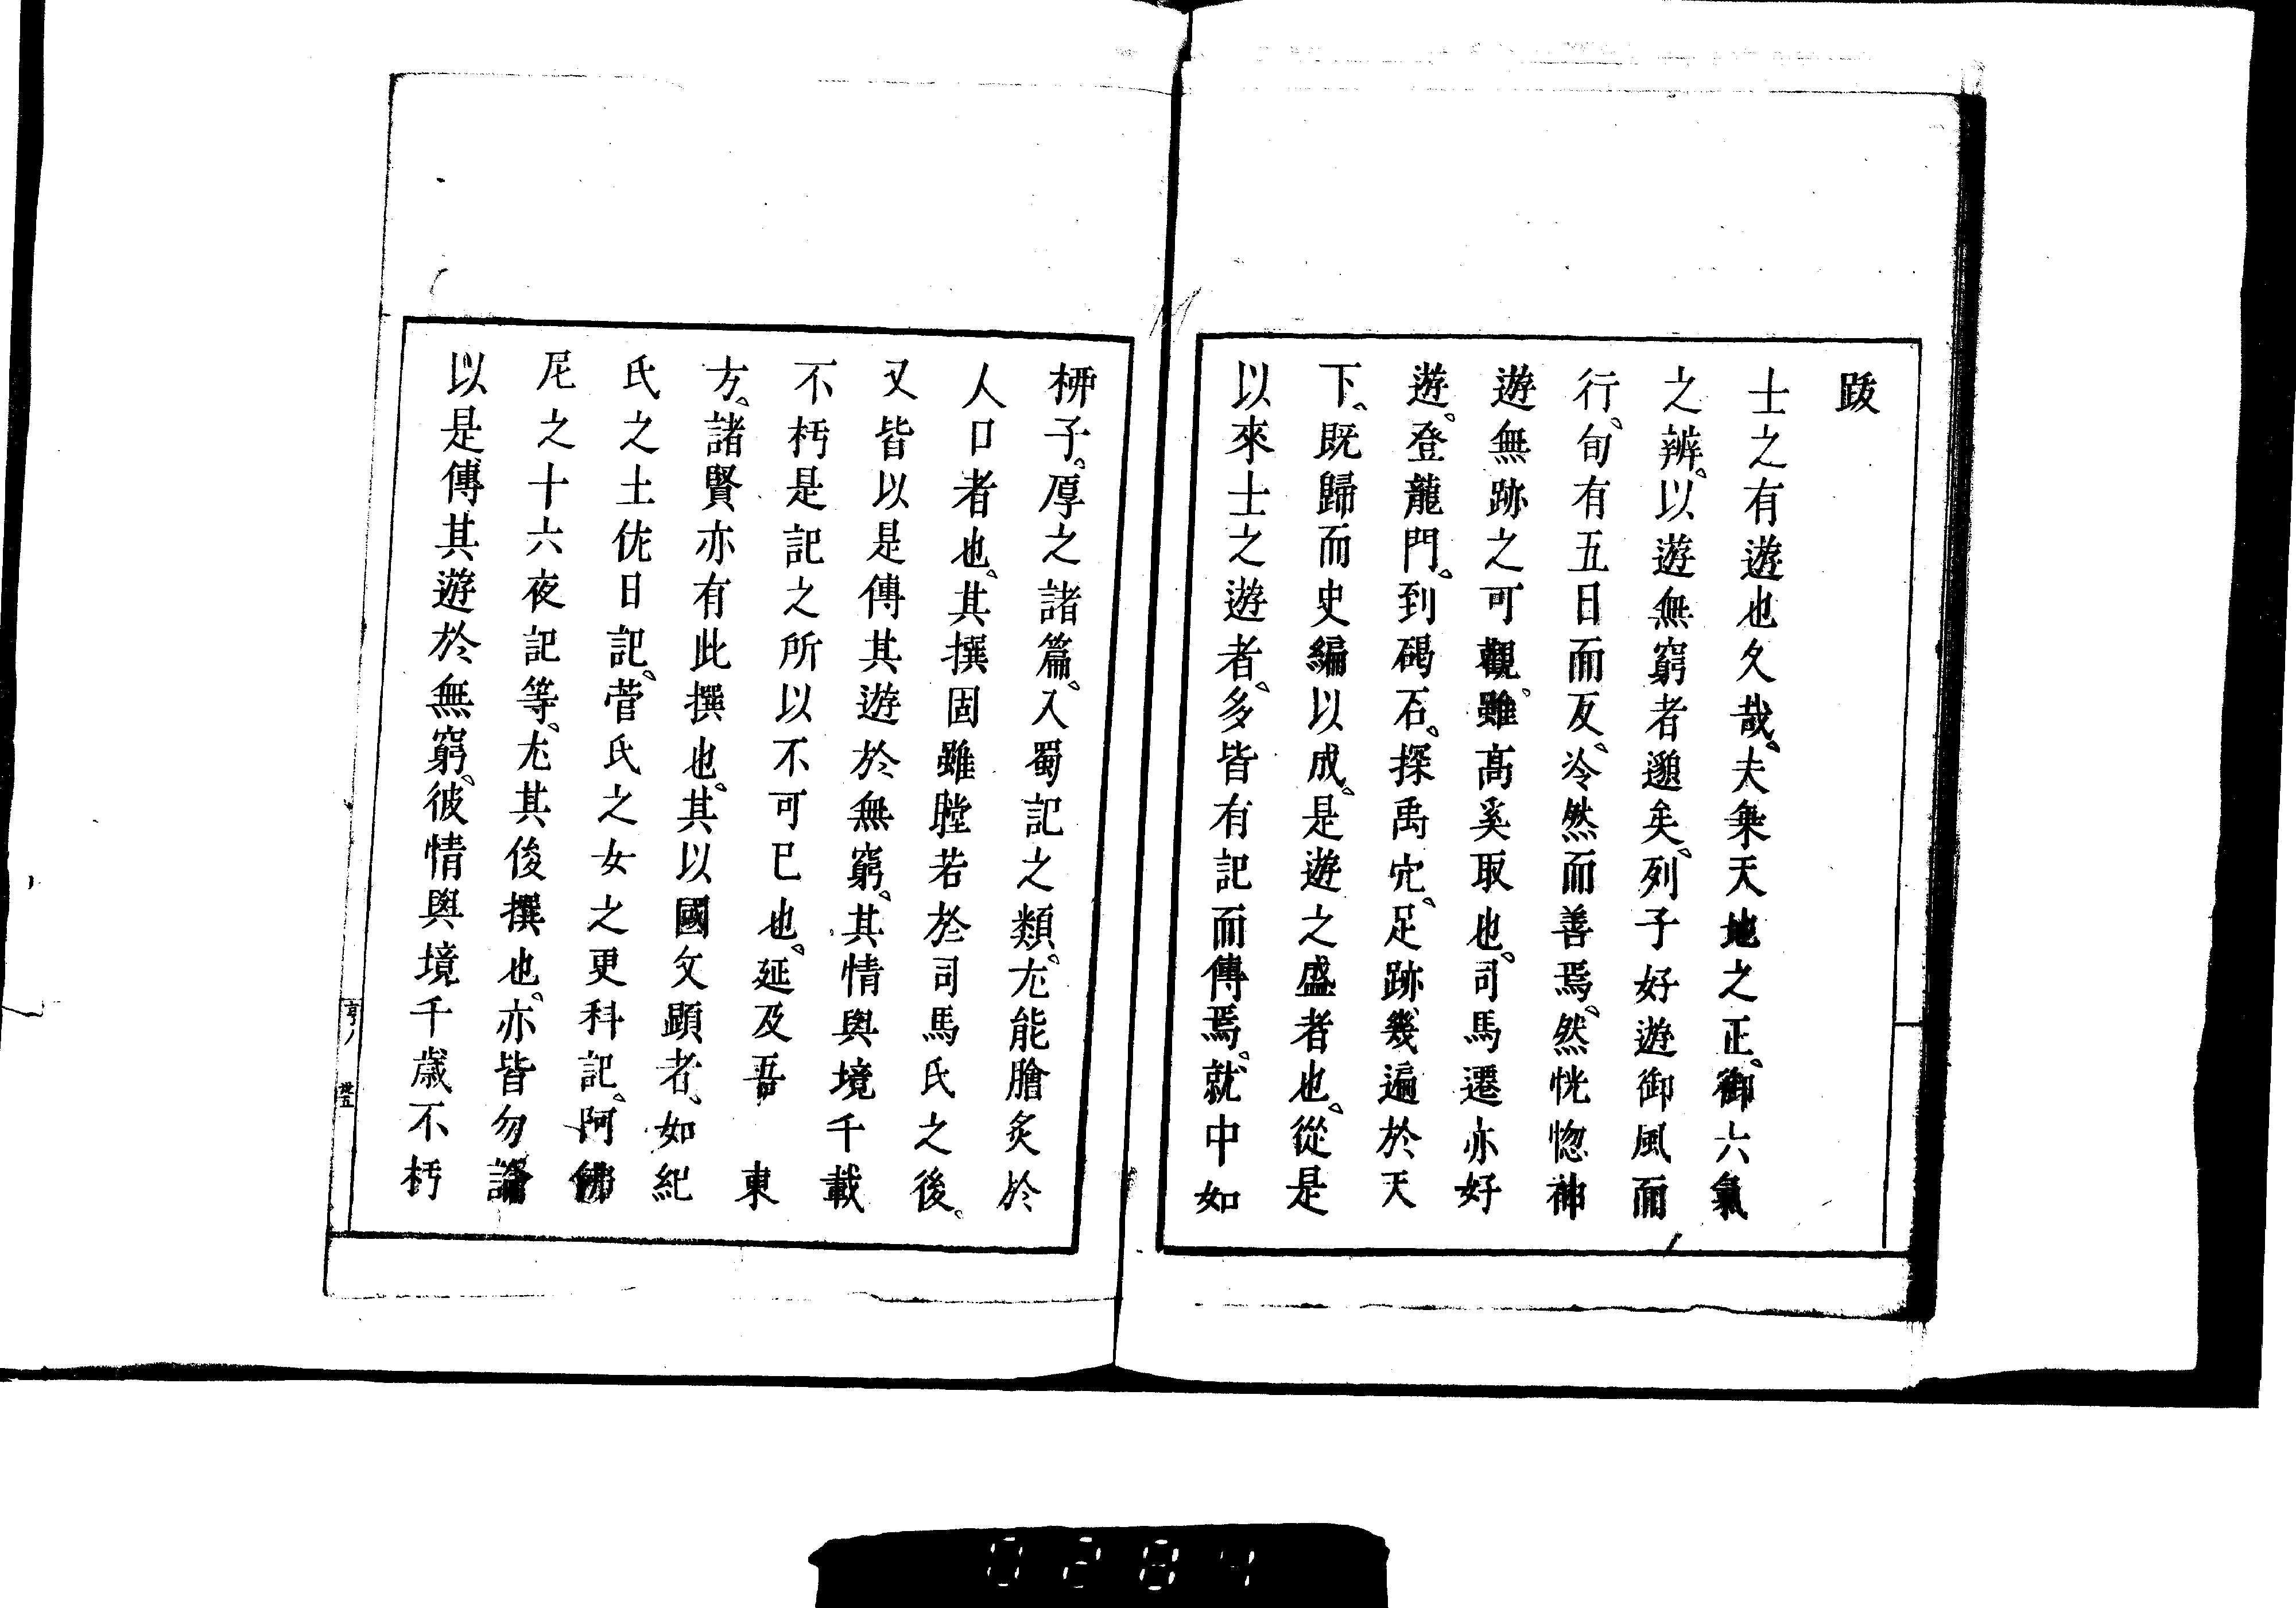 跋
士之有遊也久哉、夫乘天地之正、御六氣
之辨、以遊無窮者邈矣、列子好遊御風而
行、旬有五日而反、冷然而善焉、然恍惚神
遊無跡之可觀、雖高奚取也、司馬遷亦好
遊、登龍門、到碣石、探禹穴、足跡幾遍於天
下、既歸而史編以成、是遊之盛者也、從是
以來士之遊者、多皆有記而傳焉、就中如
柳子、厚之諸篇、入蜀記之類、尤能膾炙於
人口者也、其撰固雖瞠若於司馬氏之後、
又皆以是傳其遊於無窮、其情與境千載
不朽是記之所以不可已也、延及吾 東
方、諸賢亦有此撰也、其以國文顕者、如紀
氏之土佐日記、菅氏之女之更科記、阿佛
尼之十六夜記等、尤其後撰也、亦皆勿論
以是傳其遊於無窮、彼情與境千歳不朽
0284